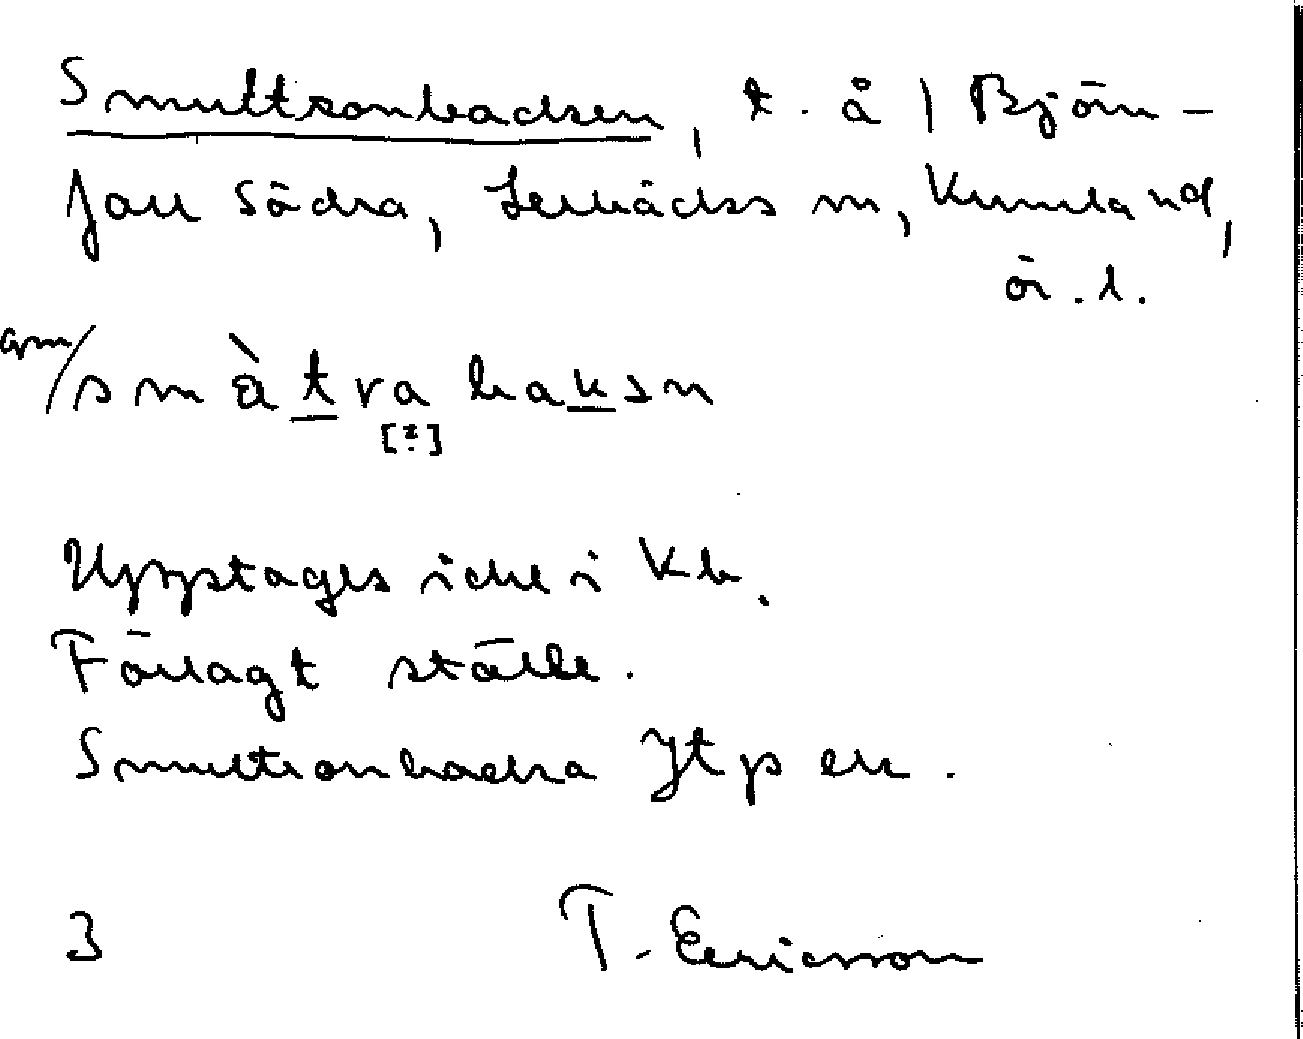 Smultronbacken, t. å 1 Björn-
fall Södra, Lerbäcks sn, Kumla hd,
ör. l.
gm/smàtrabaksn
[?]
Upptages icke i Kb.
Förlagt ställe.
Smultronbacka Jtp ek.
3 T. Ericsson